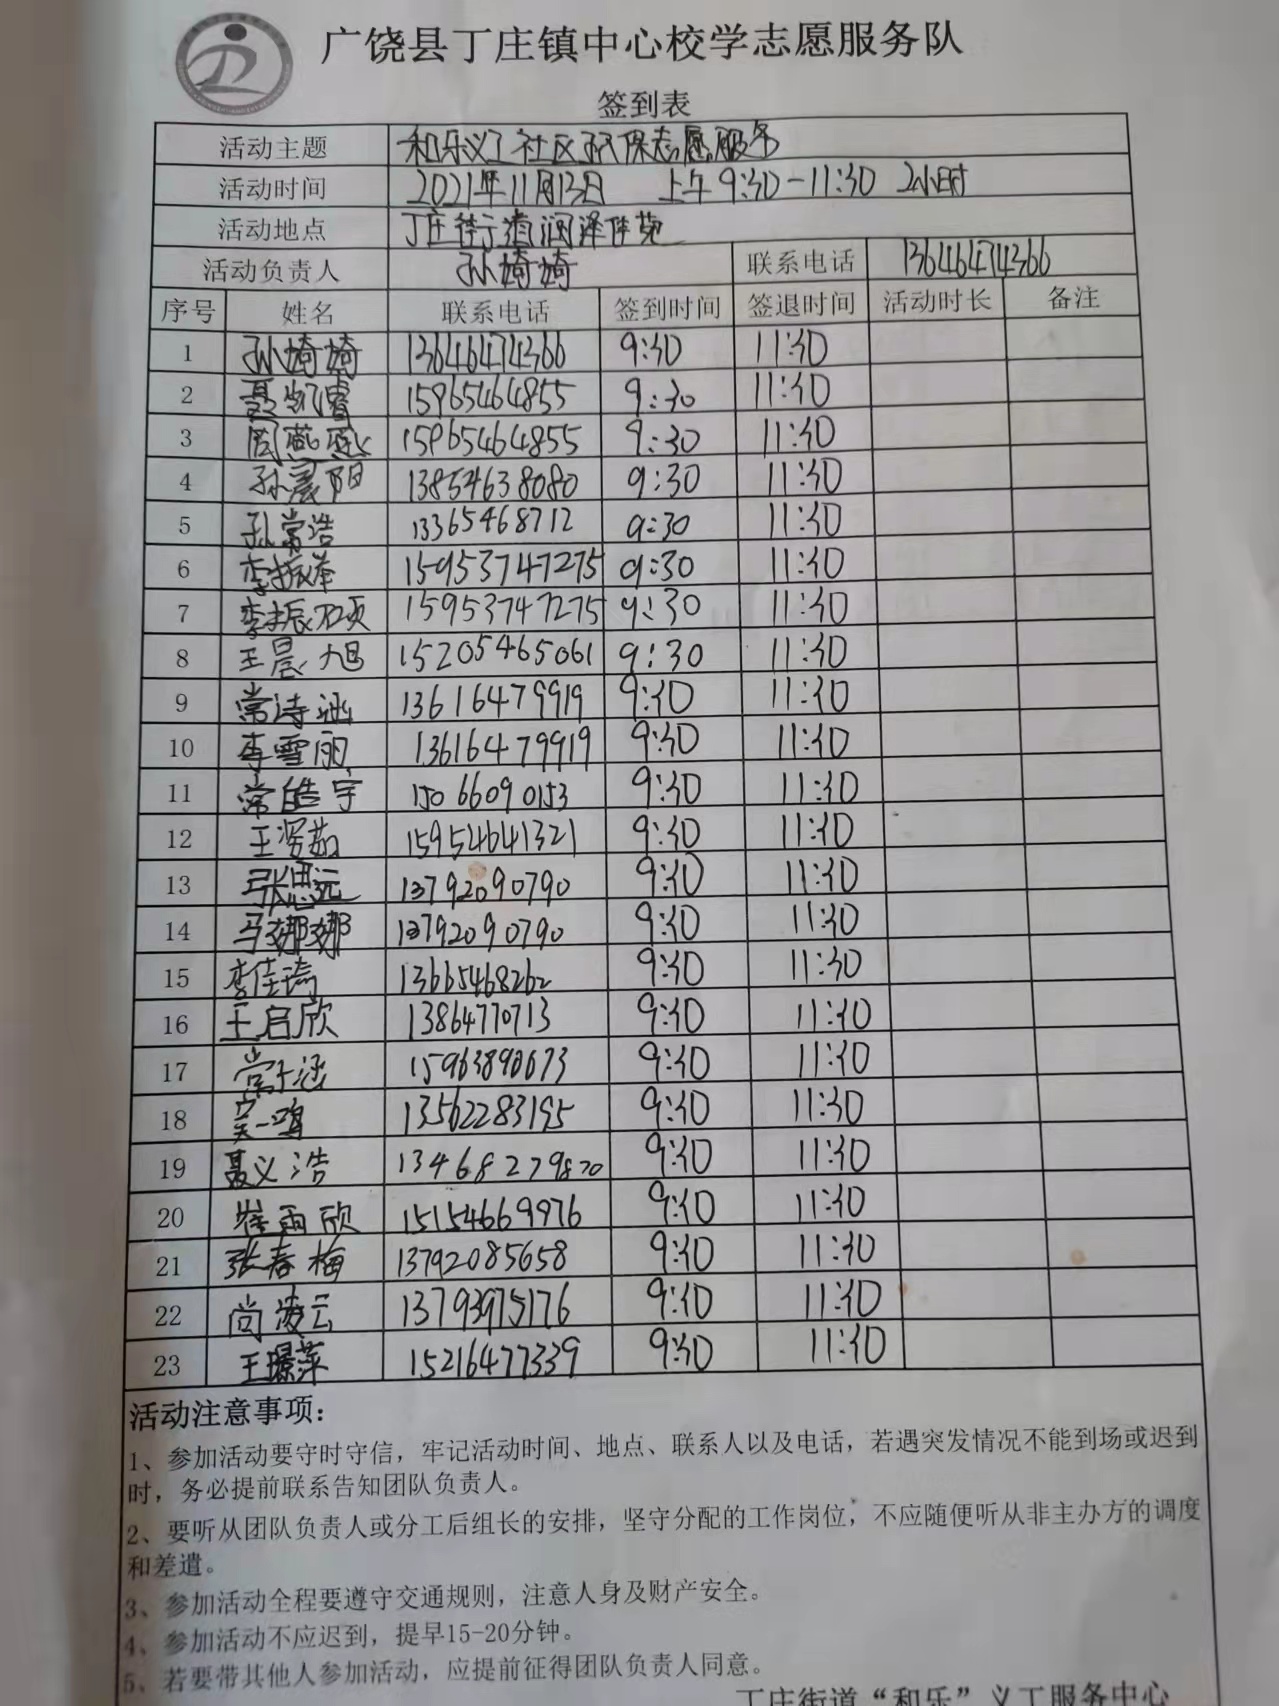 广饶县丁庄镇中心校学志愿服务队
签到表
活动主题 和乐义工社区环保志愿服务
活动时间 2021年11月13日 上午9:30-11:30 2小时
活动地点 丁庄街道润泽佳苑
活动负责人 孙婍婍 联系电话 13646474366
序号 姓名 联系电话 签到时间 签退时间 活动时长 备注
1 孙婍婍 13646474366 9:30 11:30
2 聂凯睿 15965464855 9:30 11:30
3 15965464855 9:30 11:30
4 孙晨阳 13854638080 9:30 11:30
5 孙常浩 13365468712 9:30 11:30
6 李振举 15953747275 9:30 11:30
7 李振硕 15953747275 9:30 11:30
8 王晨旭 15205465061 9:30 11:30
9 常诗涵 13616479919 9:30 11:30
10 李雪丽 13616479919 9:30 11:30
11 常皓宇 15066090153 9:30 11:30
12 15954641321 9:30 11:30
13 张思远 13792090790 9:30 11:30
14 马娜娜 13792090790 9:30 11:30
15 李佳琦 13665468262 9:30 11:30
16 王启欣 13864770713 9:30 11:30
17 常子涵 9:30 11:30
18 吴一鸣 13562283195 9:30 11:30
19 聂义浩 13468279870 9:30 11:30
20 崔雨欣 15154669976 9:30 11:30
21 张春梅 13792085658 9:30 11:30
22 尚凌云 13793975176 9:30 11:30
23 王璟萍 15216477339 9:30 11:30
活动注意事项：
1、参加活动要守时守信，牢记活动时间、地点、联系人以及电话，若遇突发情况不能到场或迟到
时，务必提前联系告知团队负责人。
2、要听从团队负责人或分工后组长的安排，坚守分配的工作岗位，不应随便听从非主办方的调度
和差遣。
3、参加活动全程要遵守交通规则，注意人身及财产安全。
4、参加活动不应迟到，提早15-20分钟。
5、若要带其他人参加活动，应提前征得团队负责人同意。
丁庄街道“和乐”义工服务中心